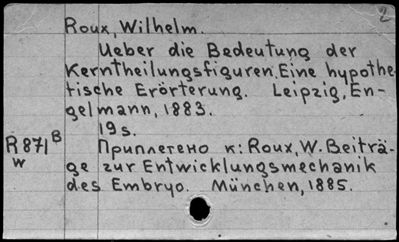 2
Roux, Wilhelm.
Ueber die Bedeutung der
Kerntheilungsfiguren. Eine hypothe-
tische Erörterung. Leipzig, En-
gelmann, 1883.
19 s.
R 871 B
w
Приплетено к: Roux, W. Beiträ-
ge zur Entwicklungsmechanik
des Embryo. München, 1885.